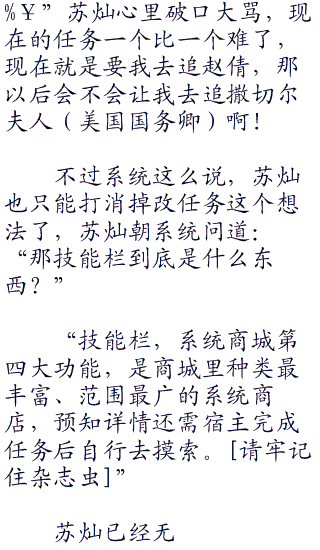 %￥”苏灿心里破口大骂，现
在的任务一个比一个难了，
现在就是要我去追赵倩，那
以后会不会让我去追撒切尔
夫人（美国国务卿）啊！
不过系统这么说，苏灿
也只能打消掉改任务这个想
法了，苏灿朝系统问道：
“那技能栏到底是什么东
西？”
“技能栏，系统商城第
四大功能，是商城里种类最
丰富、范围最广的系统商
店，预知详情还需宿主完成
任务后自行去摸索。[请牢记
住杂志虫]”
苏灿已经无